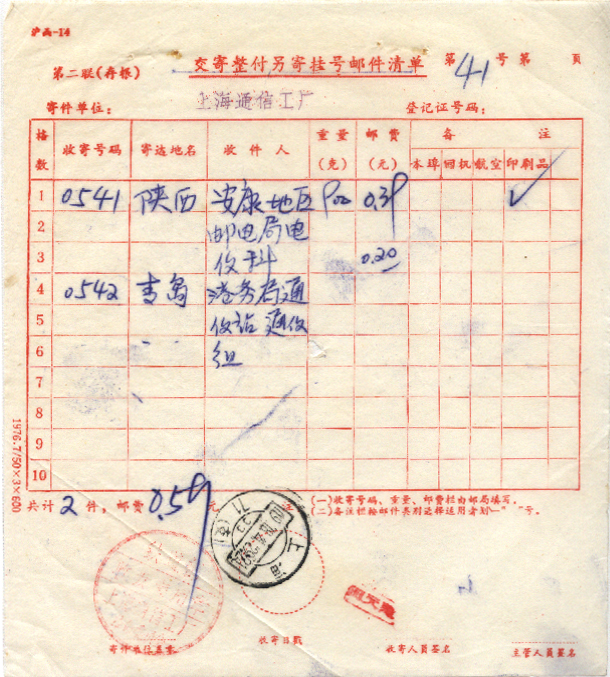 沪函-14
第二联(存根) 交寄整付另寄挂号邮件清单 第41号第 页
寄件单位: 上海通信工厂 登记证号码:
格数 收寄号码 寄达地名 收件人 重量(克) 邮费(元) 备注
本埠 回执 航空 印刷品
1 0541 陕西 安康地区 0.39 ✓
2 邮电局电
3 仪科 0.20
4 0542 青岛 港务局通
5 仪站 通仪
6 组
7
8
9
10
共计2件,邮费0.59元 注 (一)收寄号码、重量、邮费栏由邮局填写。
(二)备注栏按邮件类别选择适用者划一" "号。
上海
寄件单位盖章 收寄日戳 收寄人员签名 主管人员签名
1976.7/50×3×600